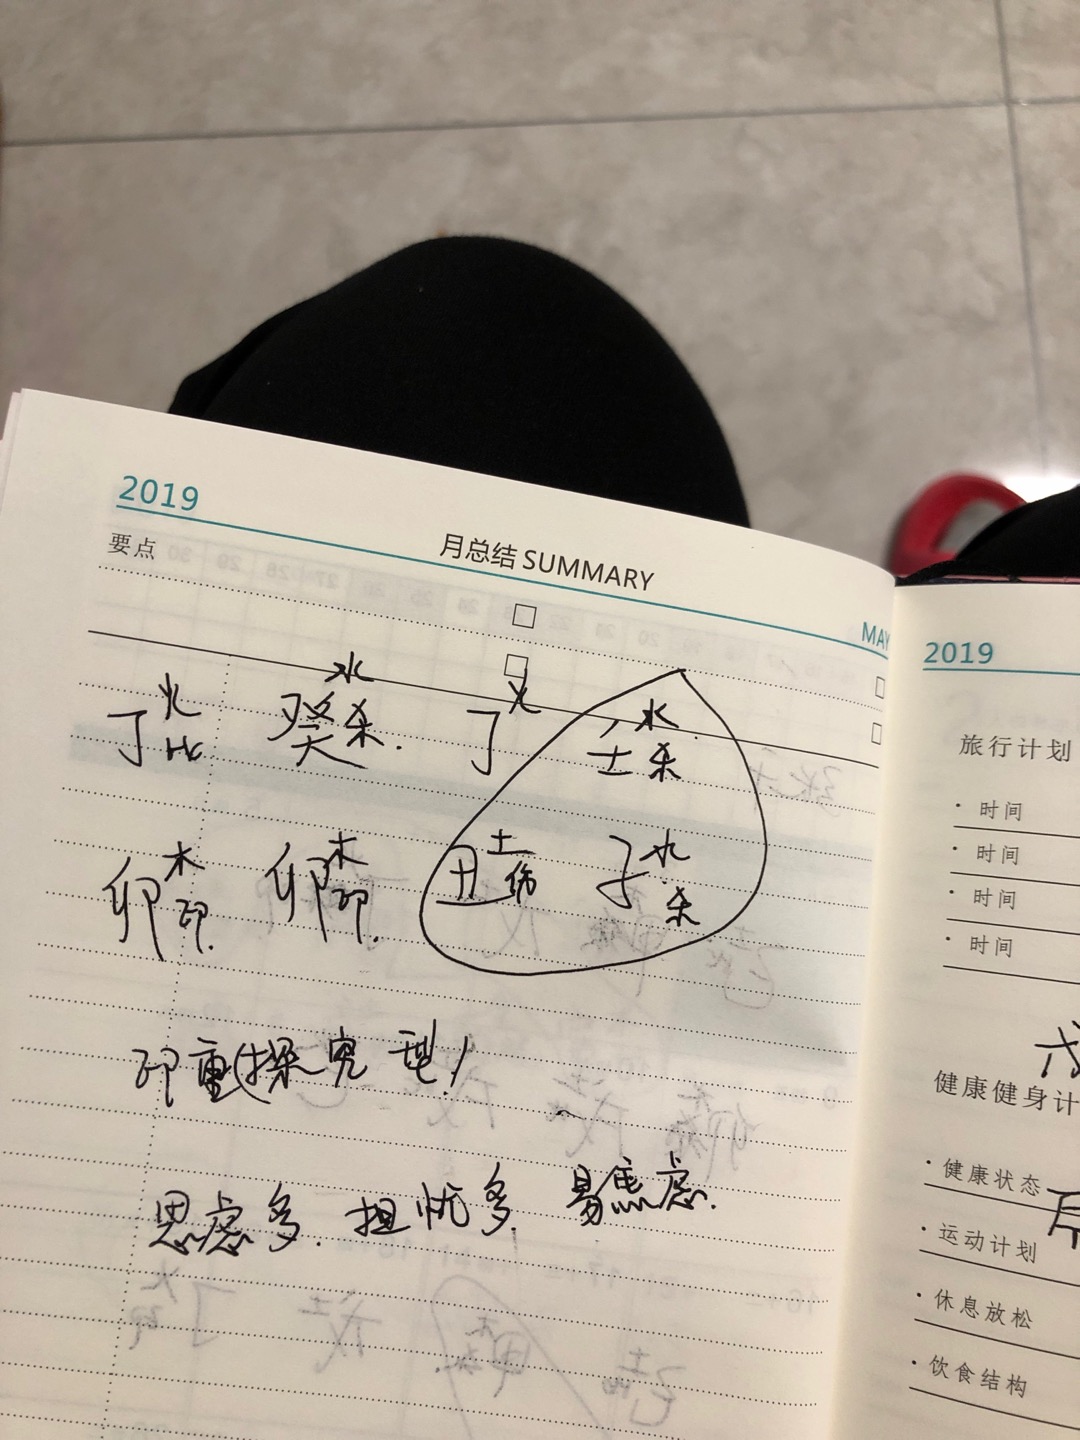 2019
要点
月总结 SUMMARY
MAY
火 水 火 水
丁 比 癸 杀. 丁 壬 杀
木 木 土 水
卯 印. 卯 印. 丑 伤 子 杀
印重(探究型!
思虑多. 担忧多. 易焦虑.
2019
旅行计划
·时间
·时间
·时间
·时间
健康健身计
·健康状态
·运动计划
·休息放松
·饮食结构